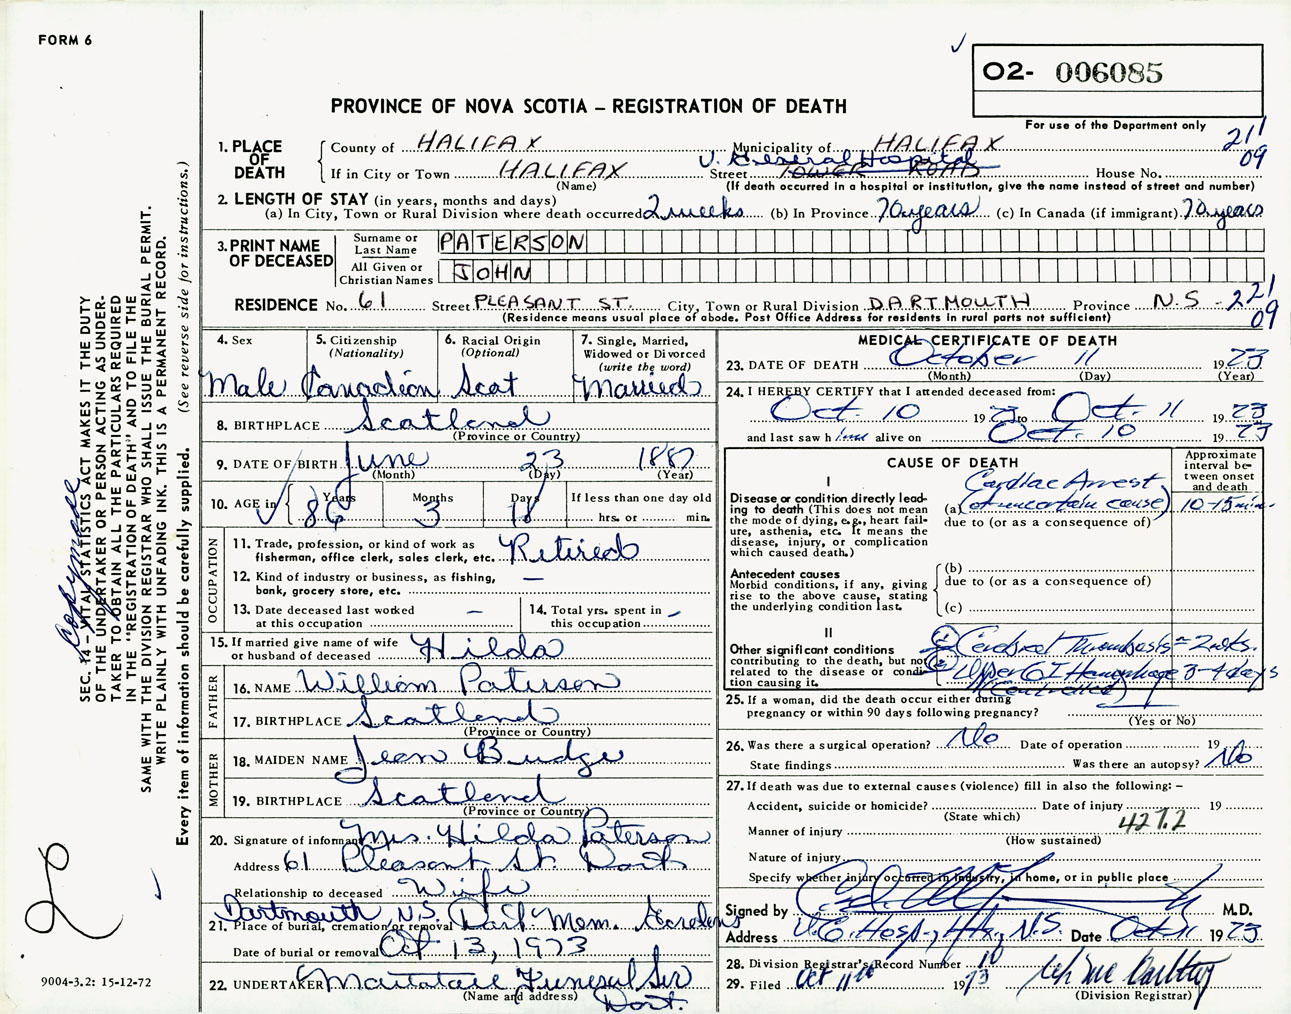 FORM 6
O2- 006085
PROVINCE OF NOVA SCOTIA – REGISTRATION OF DEATH
For use of the Department only
211
09
1. PLACE OF DEATH
County of HALIFAX Municipality of HALIFAX
V. General Hospital
If in City or Town HALIFAX Street TOWER ROAD House No.
(Name) (If death occurred in a hospital or institution, give the name instead of street and number)
2. LENGTH OF STAY (in years, months and days)
(a) In City, Town or Rural Division where death occurred 2 weeks (b) In Province 70 years (c) In Canada (if immigrant) 70 years
3. PRINT NAME OF DECEASED
Surname or Last Name PATERSON
All Given or Christian Names JOHN
RESIDENCE No. 61 Street PLEASANT ST. City, Town or Rural Division DARTMOUTH Province N.S - 221
09
(Residence means usual place of abode. Post Office Address for residents in rural parts not sufficient)
4. Sex
Male
5. Citizenship (Nationality)
Canadian
6. Racial Origin (Optional)
Scot
7. Single, Married, Widowed or Divorced (write the word)
Married
8. BIRTHPLACE Scotland
(Province or Country)
9. DATE OF BIRTH June 23 1887
(Month) (Day) (Year)
10. AGE in Years Months Days If less than one day old
86 3 18 hrs. or min.
OCCUPATION
11. Trade, profession, or kind of work as fisherman, office clerk, sales clerk, etc. Retired
12. Kind of industry or business, as fishing, bank, grocery store, etc. —
13. Date deceased last worked at this occupation –
14. Total yrs. spent in this occupation –
15. If married give name of wife or husband of deceased Hilda
FATHER
16. NAME William Paterson
17. BIRTHPLACE Scotland
(Province or Country)
MOTHER
18. MAIDEN NAME Jean Budge
19. BIRTHPLACE Scotland
(Province or Country)
20. Signature of informant Mrs. Hilda Paterson
Address 61 Pleasant St. Dart
Relationship to deceased Wife
Dartmouth, N.S.
21. Place of burial, cremation or removal Dart Mem. Gardens
Date of burial or removal Oct 13, 1973
22. UNDERTAKER Funeral Ser
(Name and address) Dart.
MEDICAL CERTIFICATE OF DEATH
23. DATE OF DEATH October 11 1973
(Month) (Day) (Year)
24. I HEREBY CERTIFY that I attended deceased from:
Oct. 10 1973 to Oct. 11 1973
and last saw him alive on Oct. 10 1973
CAUSE OF DEATH
Approximate interval between onset and death
I
Disease or condition directly leading to death (This does not mean the mode of dying, e.g., heart failure, asthenia, etc. It means the disease, injury, or complication which caused death.)
Cardiac Arrest
(a) (of uncertain cause) 10-15 min.
due to (or as a consequence of)
Antecedent causes
Morbid conditions, if any, giving rise to the above cause, stating the underlying condition last.
(b)
due to (or as a consequence of)
(c)
II
Other significant conditions contributing to the death, but not related to the disease or condition causing it.
1 Cerebral Thrombosis ≈ 2 wks.
2 Upper GI Hemorrhage 3-4 days
(Controlled)
25. If a woman, did the death occur either during pregnancy or within 90 days following pregnancy?
(Yes or No)
26. Was there a surgical operation? No Date of operation 19
State findings Was there an autopsy? No
27. If death was due to external causes (violence) fill in also the following: –
Accident, suicide or homicide? Date of injury 19
(State which)
Manner of injury 427.2
(How sustained)
Nature of injury
Specify whether injury occurred in industry, in home, or in public place
Signed by M.D.
Address V.G. Hosp., Hfx, N.S. Date Oct 11 1973
28. Division Registrar's Record Number 10
29. Filed Oct 11th 1973
(Division Registrar)
SEC. 14 – VITAL STATISTICS ACT MAKES IT THE DUTY
OF THE UNDERTAKER OR PERSON ACTING AS UNDER-
TAKER TO OBTAIN ALL THE PARTICULARS REQUIRED
IN THE "REGISTRATION OF DEATH" AND TO FILE THE
SAME WITH THE DIVISION REGISTRAR WHO SHALL ISSUE THE BURIAL PERMIT.
WRITE PLAINLY WITH UNFADING INK. THIS IS A PERMANENT RECORD.
Every item of information should be carefully supplied. (See reverse side for instructions.)
9004-3.2: 15-12-72